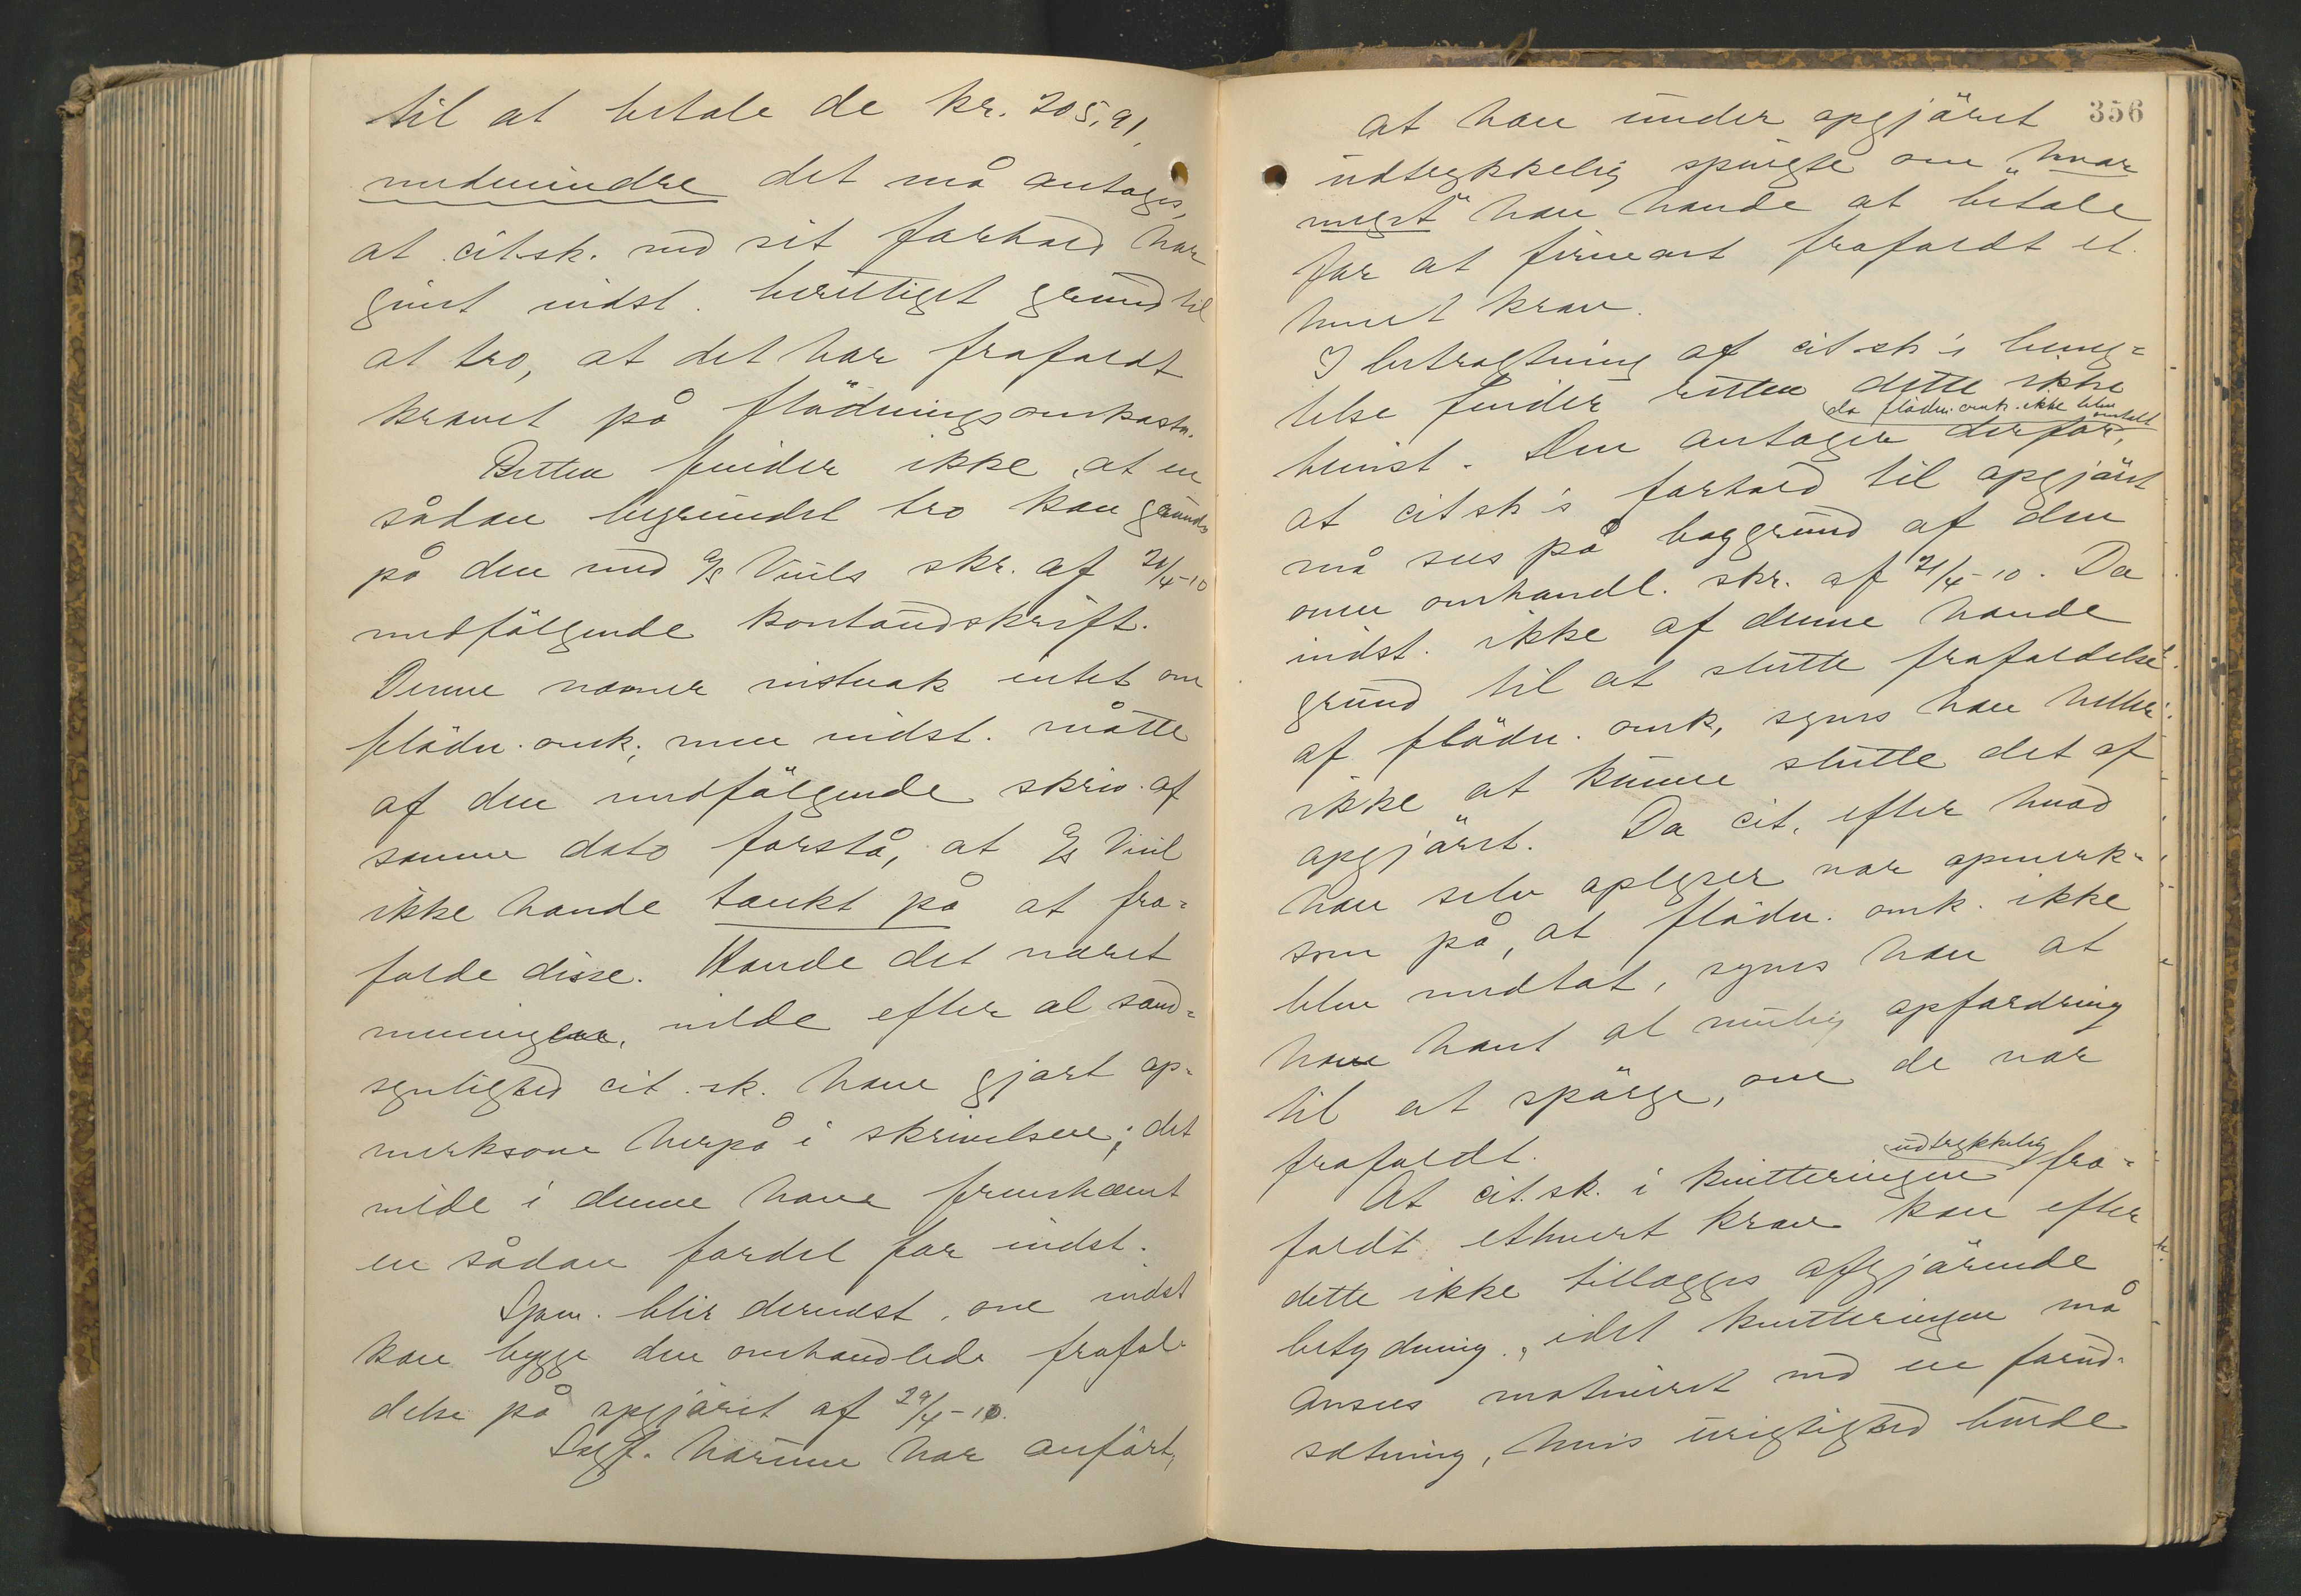 til at betale de kr. 205,91,
medmindre det må antages,
at cit.sk. ved sit forhold har
givet indst. berettiget grund til
at tro, at det har frafaldt
kravet på flödningsomkostn.
Retten finder ikke, at en
sådan begrundet tro kan grundes
på den med A/S Viuls skr. af 20/4-10
medfölgende kontoudskrift.
Denne nævner vistnok intet om
flödn. omk; men indst. måtte
af den medfölgende skriv. af
samme dato forstå, at A/S Viul
ikke havde tænkt på at fra=
falde disse. Havde det været
meningen, vilde efter al sand=
synlighed cit.sk. have gjort op=
merksom herpå i skrivelsen; det
vilde i denne have fremhævet
en sådan fordel for indst.
Spm. blir dernæst, om indst
kan bygge den omhandlede frafal-
delse på opgjöret af 29/4-10.
Sagf. Harum har anfört,
356
at han under opgjöret
udtrykkelig spurgte om "hvor
meget" han havde at betale
for at firmaet frafaldt et-
hvert krav.
I betragtning af cit.sk's benæg=
telse finder retten dette ikke
da flödn. omk. ikke blev omtalt
bevist. Den antager derfor,
at cit.sk's forhold til opgjöret
må sees på baggrund af den
oven omhandl. skr. af 21/4-10. Da
indst. ikke af denne havde
grund til at slutte frafaldelse
af flödn. omk, synes han heller
ikke at kunne slutte det af
opgjöret. Da cit. efter hvad
han selv oplyser var opmerk-
som på, at flödn. omk. ikke
blev medtat, synes han at
have havt al mulig opfordring
til at spörge, om de var
frafaldt.
udtrykkelig
At cit.sk. i kvitteringen fra=
faldt ethvert krav kan efter
dette ikke tillægges afgjörende
betydning, idet kvitteringen må
ansees motiveret ved en forud-
sætning, hvis urigtighed burde